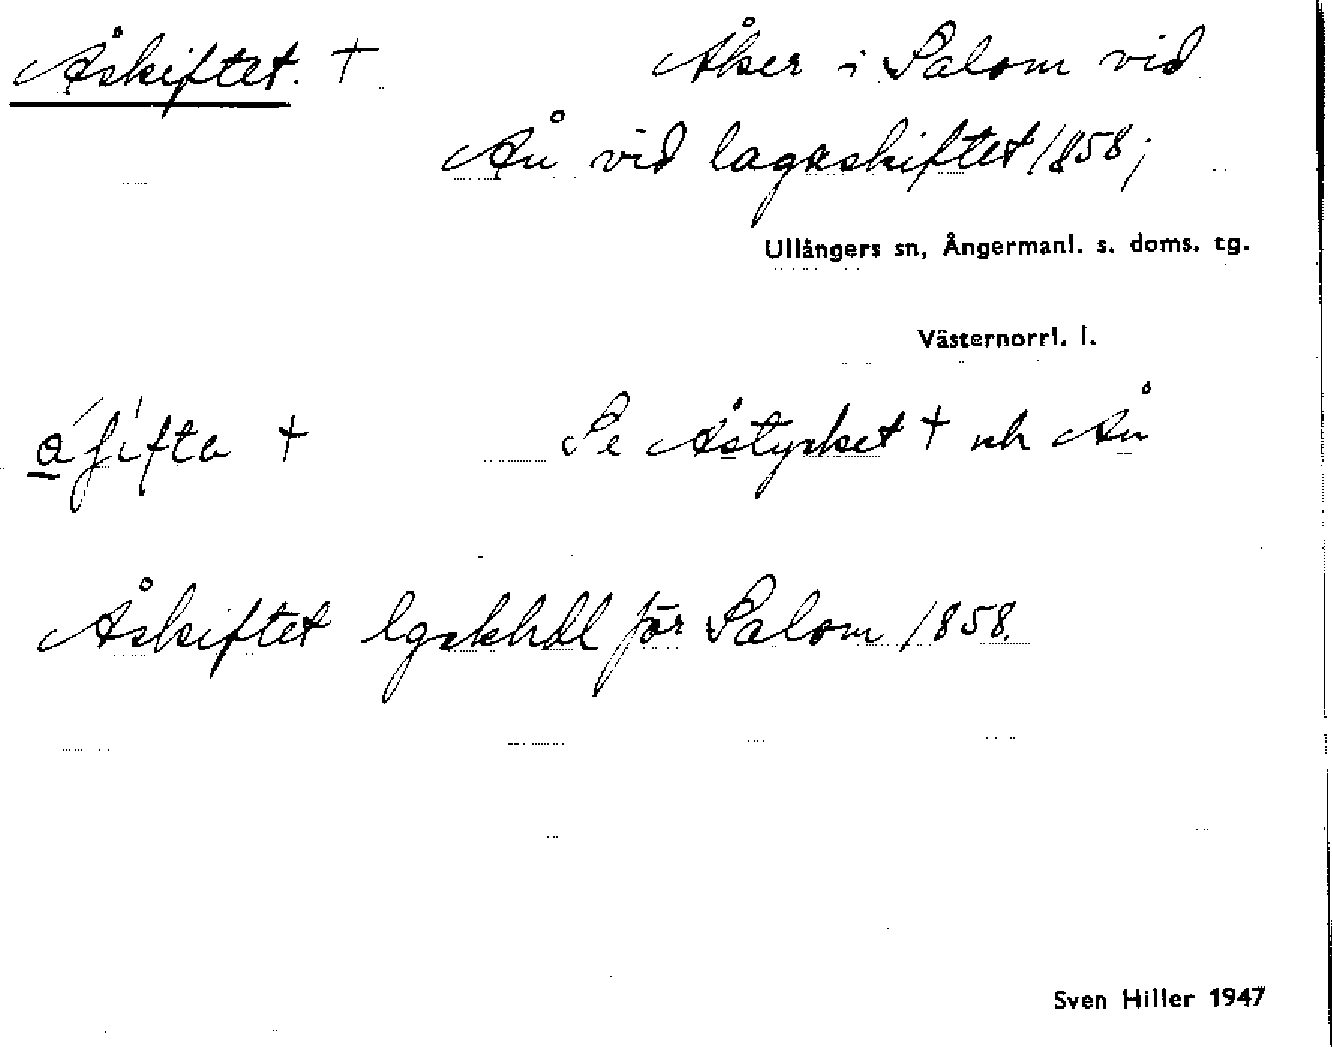 Åskiftet. † Åker i Salom vid
Ån vid lagaskiftet 1858;
Ullångers sn, Ångermanl. s. doms. tg.
Västernorrl. l.
Se Åstycket † och Ån
Åskiftet lgskhdl för Salom 1858.
Sven Hiller 1947